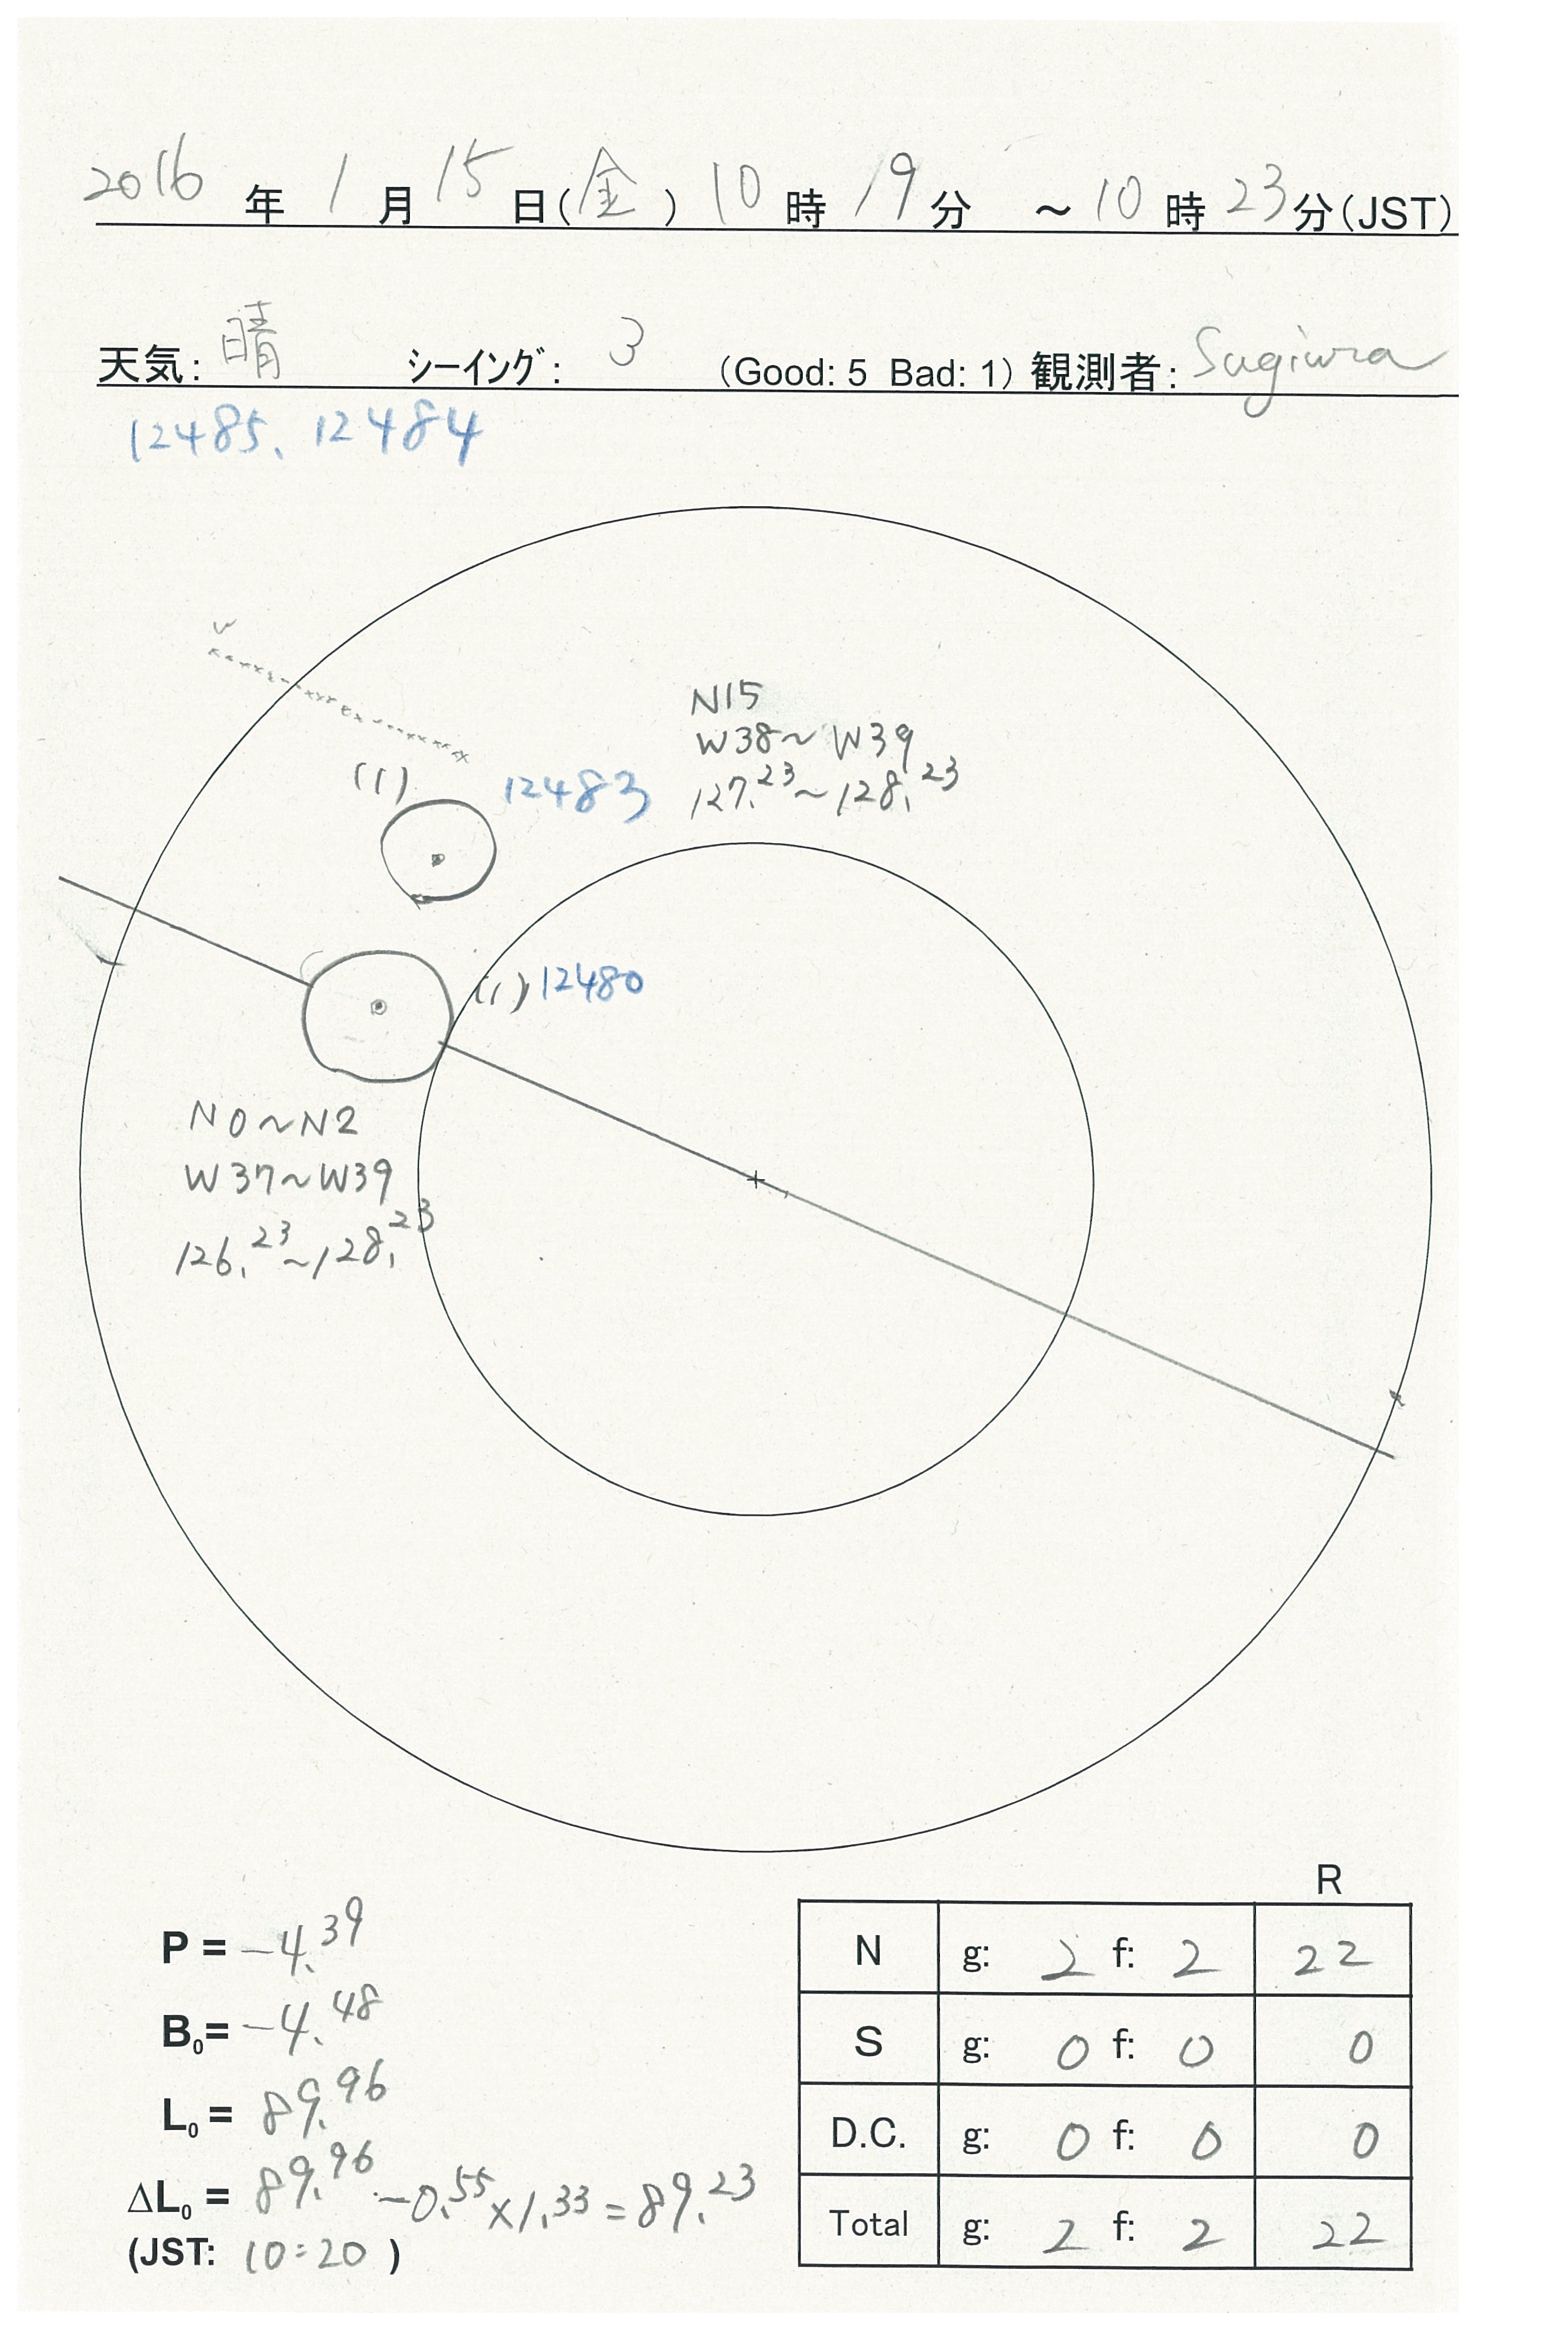 2016 年 1 月 15 日(金) 10 時 19 分 ～ 10 時 23 分(JST)
天気: 晴 シーイング: 3 (Good: 5 Bad: 1) 観測者: Sugiura
12485、12484
W
N15
W38～W39
(1) 12483 127.23～128.23
(1) 12480
N0～N2
W37～W39
126.23～128.23
R
P = -4.39
N g: 2 f: 2 22
B0= -4.48
S g: 0 f: 0 0
L0 = 89.96
D.C. g: 0 f: 0 0
ΔL0 = 89.96 -0.55×1.33=89.23
Total g: 2 f: 2 22
(JST: 10:20 )